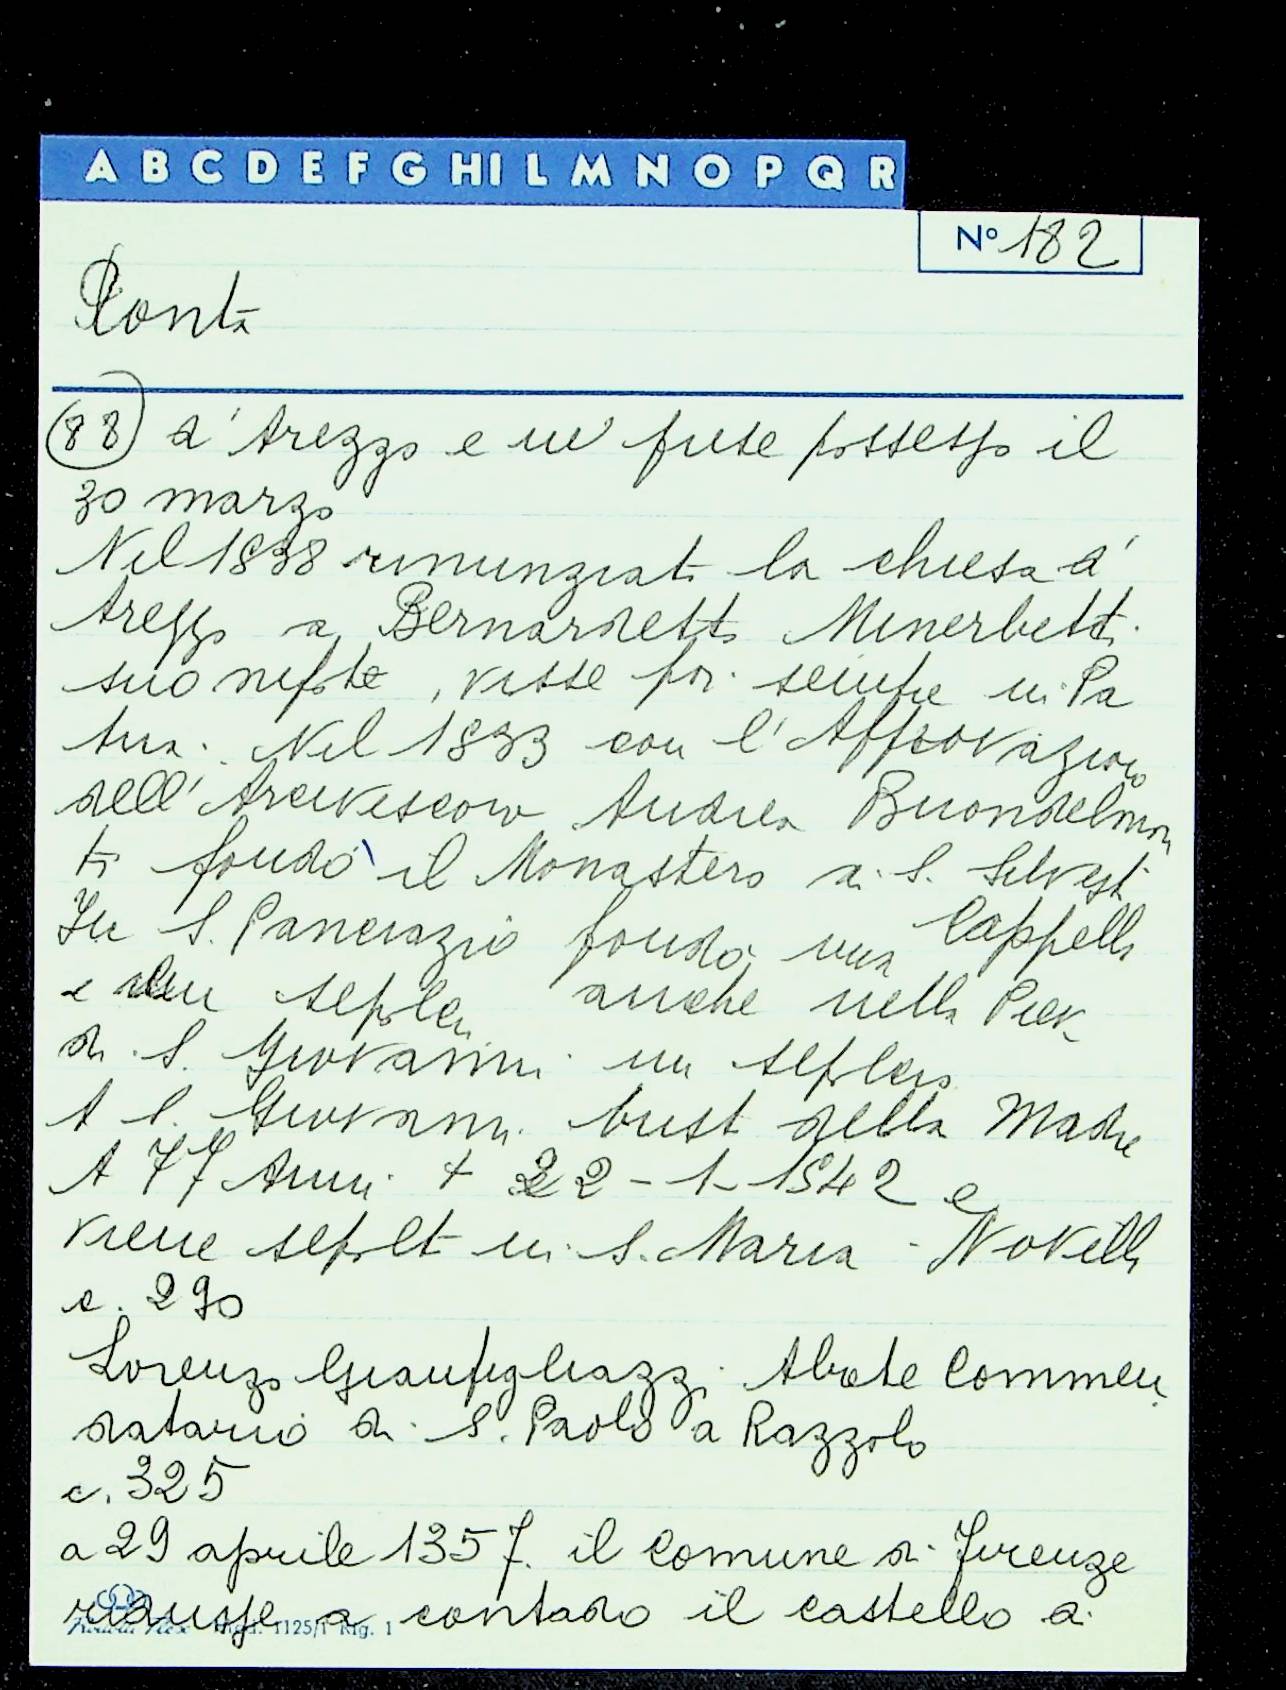 A B C D E F G HI L M N O P Q R
Nº 182
(88) d'Arezzo e ne prese possesso il
30 marzo
Nel 1538 rinunziat la chiesa d'
Arezzo a Bernardetto Minerbetti
suo nipote, visse poi sempre in Pa
tria. Nel 1533 con l'Approvazione
dell'Arcivescovo Andrea Buondelmon
ti fondò il Monastero di S. Silvest
In S. Pancrazio fondò una Cappella
e un sepolcr anche nella Piev
di S. Giovanni un sepolcro
A S. Giovanni bust della Madre
A 77 Anni + 22-1-1542 e
viene sepolt in S. Maria - Novella
c. 290
Lorenzo Gianfigliazzi Abate Commen
datario di S. Paolo a Razzolo
c. 325
a 29 aprile 1357. il Comune di Firenze
ridusse a contado il castello di
Mod. 1125/1 Rig. 1